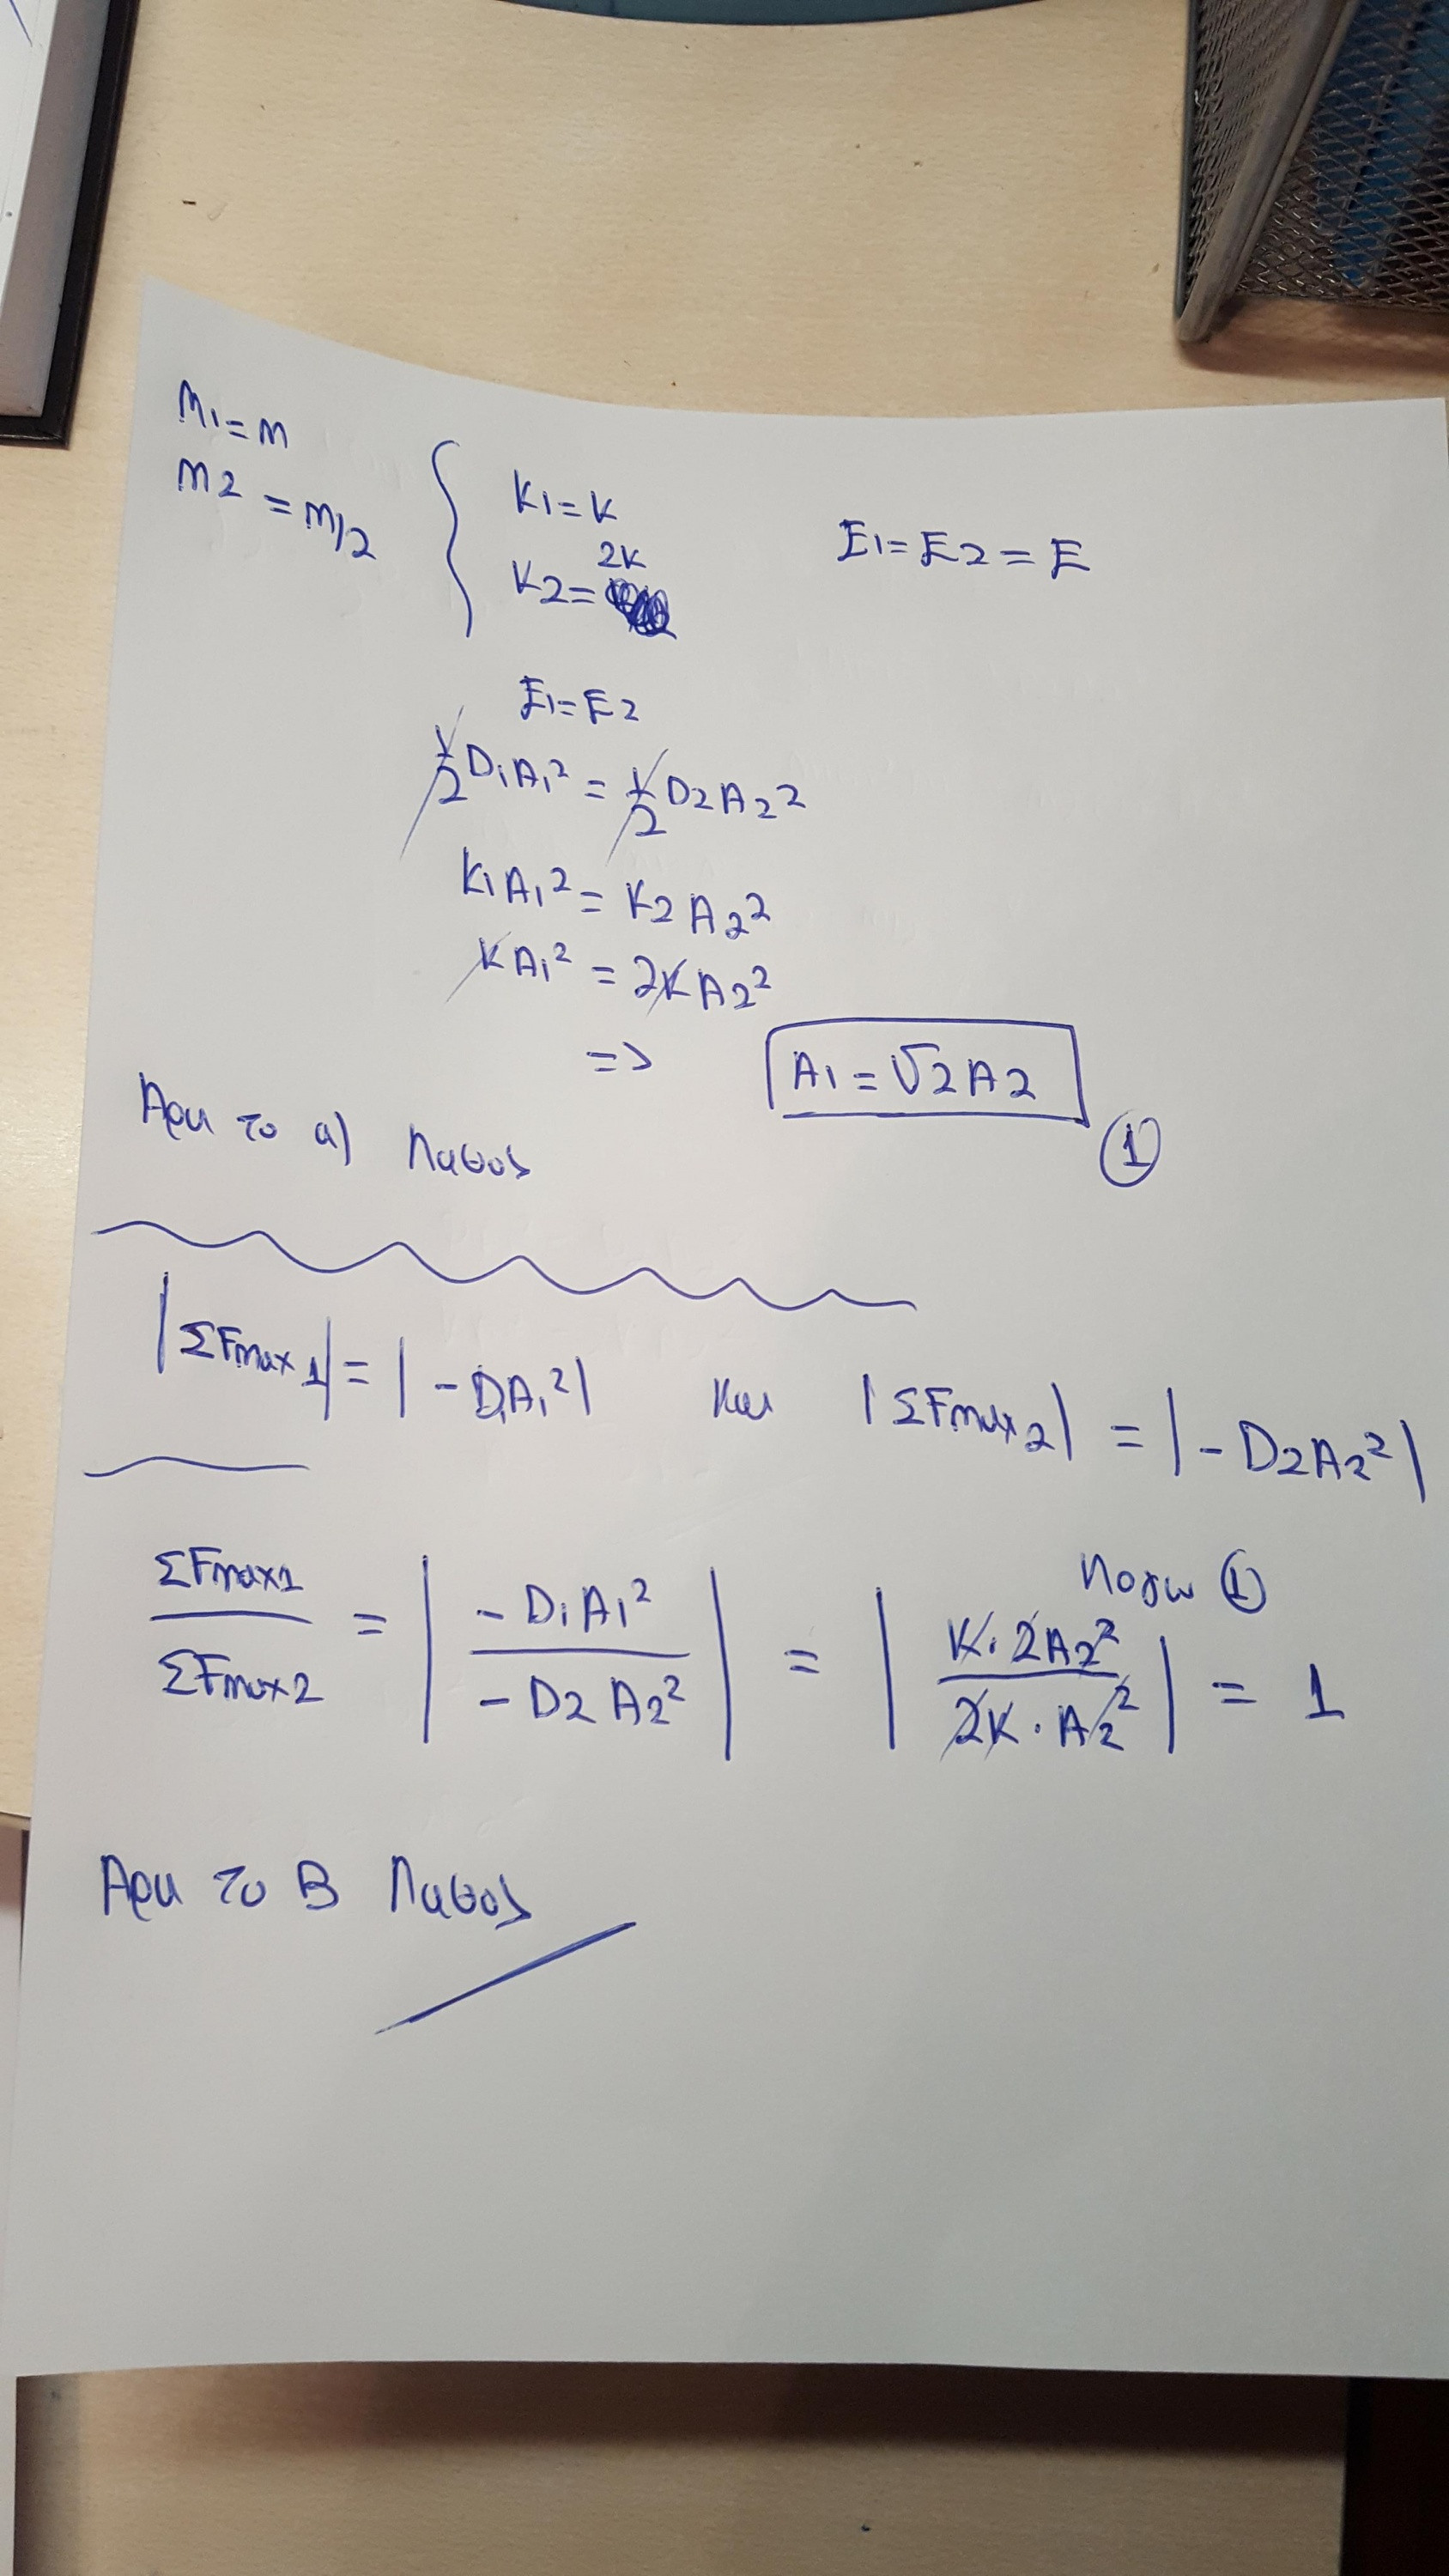 m1=m
m2=m/2
K1=K
K2=2K
E1=E2=E
E1=E2
1/2 D1A1² = 1/2 D2A2²
K1A1² = K2A2²
KA1² = 2KA2²
=> A1=√2A2 ①
Αρα το α) λαθος
|ΣFmax1| = |-D1A1²| και |ΣFmax2| = |-D2A2²|
ΣFmax1/ΣFmax2 = |-D1A1²/-D2A2²| = |K·2A2²/2K·A2²| = 1
λογω ①
Αρα το Β λαθος